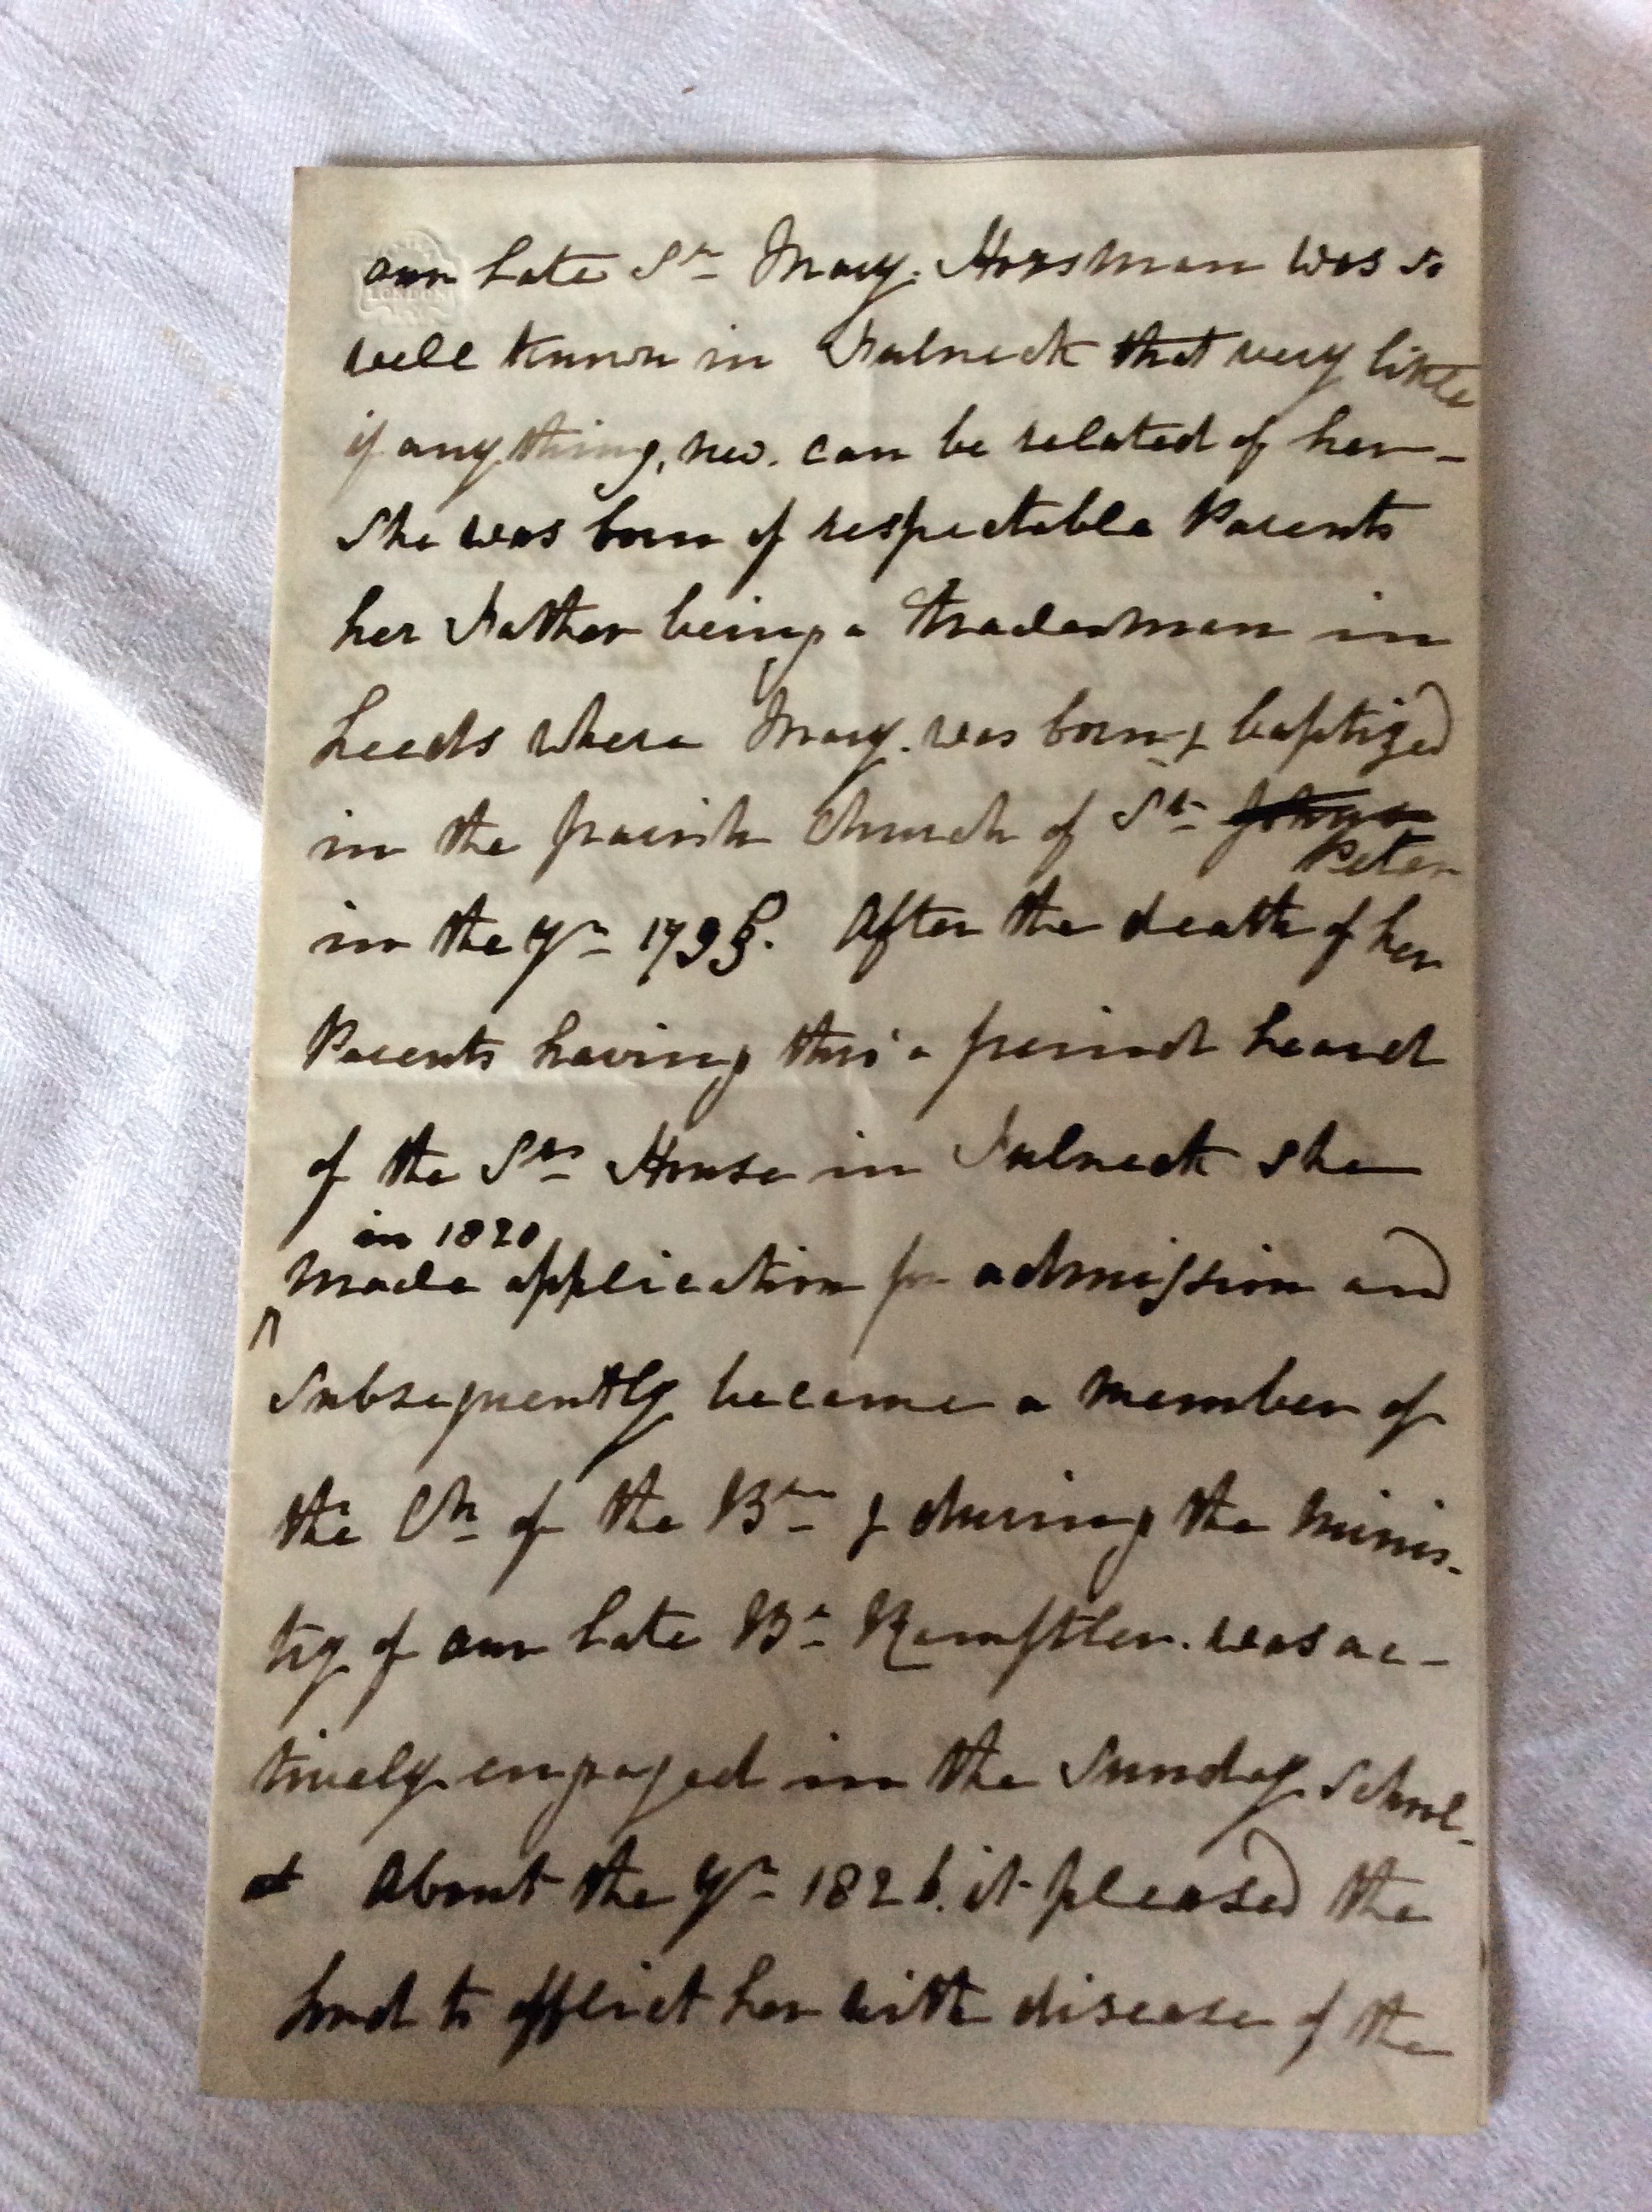 our late Sr Mary. Horsman was so
well known in Fulneck that very little
if any thing, new. can be related of her -
She was born of respectable Parents
her Father being a tradesman in
Leeds where Mary. was born & baptized
in the parish Church of St Johns
Peter
in the yr 1795. After the death of her
Parents having thro' a friend heard
of the Srs House in Fulneck she
in 1820
made application for admission and
subsequently became a member of
the Ch of the Brn & during the minis-
try of our late Br Ramftler. was ac-
tively engaged in the Sunday School -
About the yr 1826. it pleased the
Lord to afflict her with disease of the
LONDON